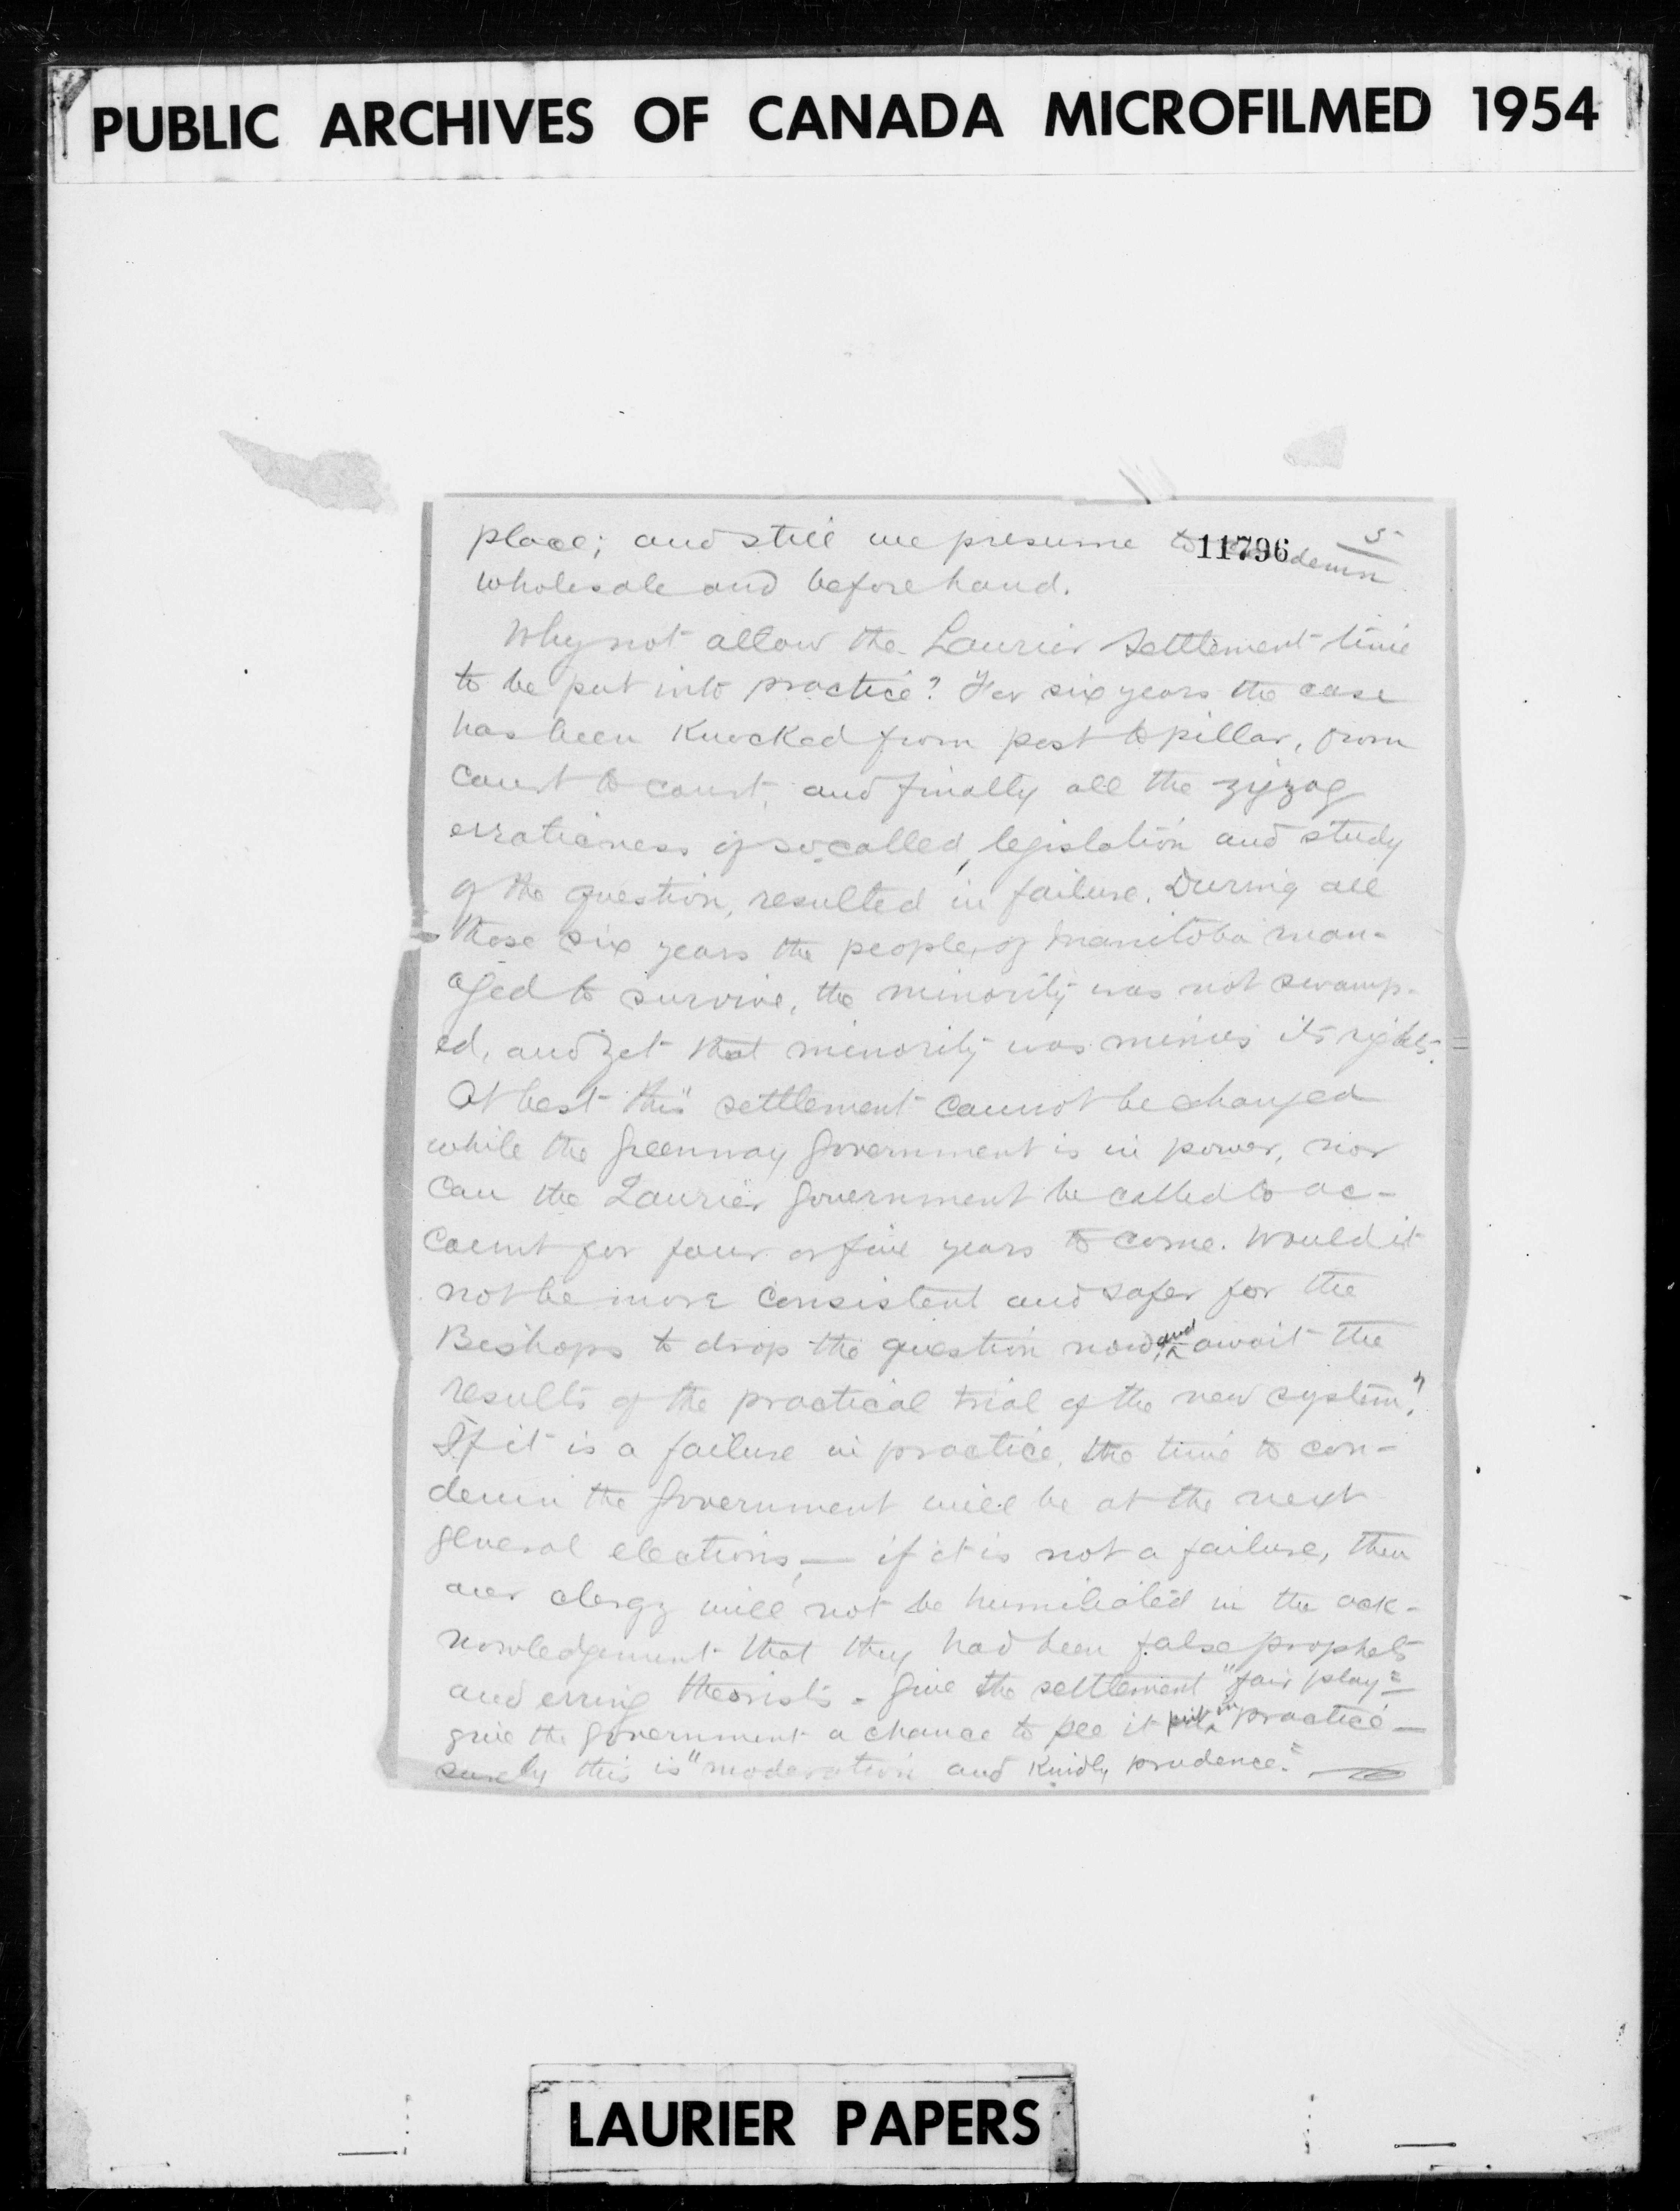 PUBLIC ARCHIVES OF CANADA MICROFILMED 1954
5
11796
place; and still we presume to condemn
wholesale and beforehand.
Why not allow the Laurier settlement time
to be put into practice? For six years the case
has been knocked from post to pillar, from
court to court, and finally all the zigzag
erraticness of so-called, legislation and study
of the question, resulted in failure. During all
those six years the people, of Manitoba man-
aged to survive, the minority was not swamp-
ed, and yet that minority was minus its rights.
At best this settlement cannot be changed
while the Greenway Government is in power, nor
can the Laurier Government be called to ac-
count for four or five years to come. Would it
not be more consistent and safer for the
Bishops to drop the question now, and await the
results of the practical trial of the new system?
If it is a failure in practice, the time to con-
demn the Government will be at the next
general elections, — if it is not a failure, then
our clergy will not be humiliated in the ack-
nowledgement that they had been false prophets
and erring theorists. Give the settlement "fair play" —
give the Government a chance to see it put in practice —
surely this is "moderation and kindly prudence."
LAURIER PAPERS